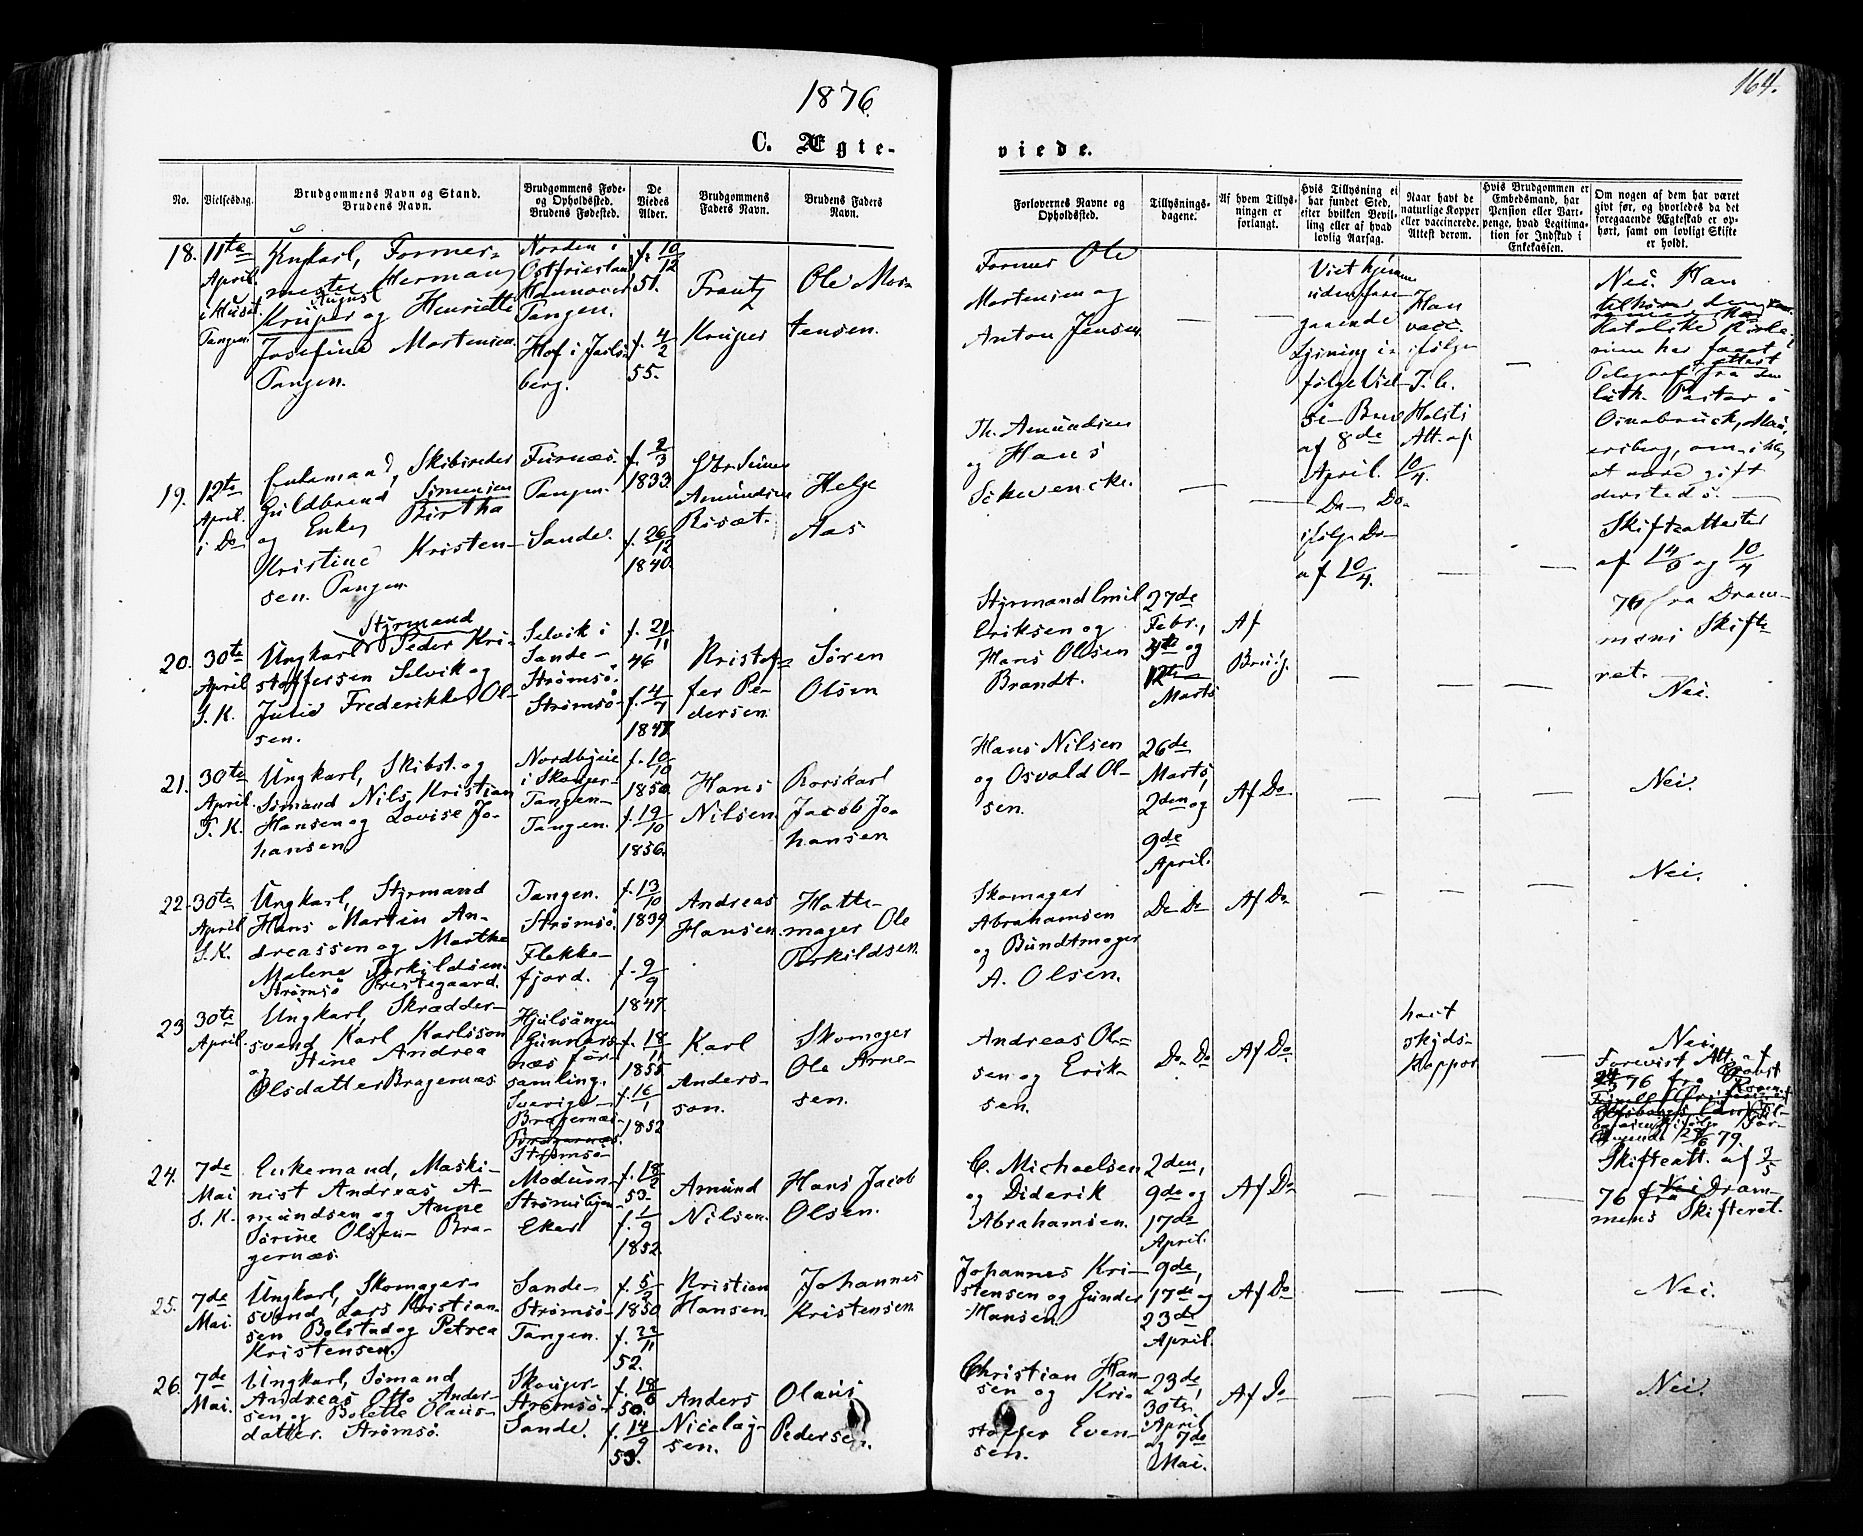 1876.
164.
C. Ægte-
viede.
No.
Vielsesdag.
Brudgommens Navn og Stand.
Brudens Navn.
Brudgommens Føde-
og Opholdssted.
Brudens Fødested.
De
Viedes
Alder.
Brudgommens
Faders Navn.
Brudens Faders
Navn.
Forlovernes Navne og
Opholdssted.
Tillysnings-
dagene.
Af hvem Tillys-
ningen er
forlangt.
Hvis Tillysning ei
har fundet Sted,
efter hvilken Bevil-
ling eller af hvad
lovlig Aarsag.
Naar havt de
naturlige Kopper
eller vaccinerede.
Attest derom.
Hvis Brudgommen er
Embedsmand, har
Pension eller Vart-
penge, hvad Legitima-
tion for Indskud i
Enkekassen.
Om nogen af dem har været
givt før, og hvorledes da det
foregaaende Ægteskab er op-
hørt, samt om lovligt Skifte
er holdt.
18.
11te
April
i Huset
Tangen
Ungkarl, Former-
mester Herman
August
Krüper og Henriette
Josefine Mortensen
Tangen.
Norden i
Ostfriesland
Hannover
Tangen.
Hof i Jarls-
berg.
f. 10/12
51.
f. 4/2
55.
Frantz
Krüper
Ole Mor-
tensen.
Former Ole
Mortensen og
Anton Jensen
Viet hjemme
uden fore-
gaaende
Lysning i-
følge Viel-
se Brev
af 8de
April.
Han
vacc.
ifølge
J. C.
Holsts
Att. af
10/4.
Nei. Han
Katolske Kirke
men har faaet
Telegraf attest
fra den
luth. Pastor i
Osnabrück,
om ikke
at være gift
dersteds.
19.
12te
April.
i Do
Enkemand, Skibsreder
Guldbrand Simensen
og Enke Birtha
Kristine Kristen-
sen. Tangen.
Furnæs.
Tangen.
Sande.
f. 2/3
1833.
f. 26/12
1840.
Amundsen
Risæt.
Helge
Aas
Th. Amundsen
og Hans
Schwencke.
Do Do
ifølge Do
af 10/4.
Skifteattester
af 14/3 og 10/4
76 fra Dram-
mens Skifte-
ret.
20.
30te
April
S. K.
Styrmand
Ungkarl Peder Kri-
stoffersen Selvik og
Julie Frederikke Ol-
sen.
Selvik i
Sande-
Strømsø.
Strømsø.
f. 21/11
46
f. 4/7
1847
Kristof-
fer Pe-
dersen
Sören
Olsen
Styrmand Emil
Eriksen og
Hans Olsen
Brandt.
27de
Febr.,
5te og
12te
Marts
Af
Brudg.
Nei.
21.
30te
April.
T. K.
Ungkarl, Skibst. og
Sømand Nils Kristian
Hansen og Lovise Jo-
hansen
Nordbyeie
i Skouger-
Tangen-
Tangen.
f. 10/10
1850.
f. 19/10
1856.
Hans
Nilsen
Rorskarl
Jacob Jo-
hansen
Hans Nilsen
og Osvald Ol-
sen.
26de
Marts,
2den og
9de
April.
Af Do
Nei.
22.
30te
April
S. K.
Ungkarl, Styrmand
Hans Martin An-
dreassen og Marthe
Malene Torkildsen.
Strømsø Prestegaard.
Tangen.
Strømsø.
Flekke-
fjord.
f. 13/10
1839
f. 9/9
1847.
Andreas
Hansen.
Hatte-
mager Ole
Torkildsen.
Skomager
Abrahamsen
og Bundtmager
A. Olsen.
Do Do
Af Do
Nei.
23
30te
April.
Ungkarl, Skrædder-
svend Karl Karlsson
og Stine Andrea
Olsdatter Bragernæs
Hjulsängen
Gunnars-
næs för-
samling.
Sverige-
Bragernæs-
Bragernæs.
Strømsø
f. 18/11
1855
f. 16/1
1852
Karl
Anders-
son.
Skomager
Ole Arne-
sen.
Andreas Ol-
sen og Erik-
sen.
Do Do
Af Do
havt
skyds-
Kopper
Nei.
Forevist Att. af
24/3 76 fra Provst
24.
7de
Mai
S. K.
Enkemand, Maski-
nist Andreas A-
mundsen og Anne
Sørine Olsen- Bra-
gernæs.
Modum-
Eker
f. 18/2
53.
f. 1/9
1852.
Amund
Nilsen.
Hans Jacob
Olsen.
C. Michaelsen
og Diderik
Abrahamsen.
2den,
9de og
17de
April.
Af Do
Skifteatt. af 3/5
76 fra Dram-
mens Skifteret.
25.
7de
Mai.
Ungkarl, Skomager-
svend Lars Kristian-
sen Bolstad og Petrea
Kristensen.
Sande-
Strømsø-
Tangen.
f. 5/2
1850
f. 22/11
52.
Kristian
Hansen.
Johannes
Kristensen
Johannes Kri-
stensen og Gunder
Hansen.
9de,
17de og
23de
April.
Af Do
Nei.
26.
7de
Mai.
Ungkarl, Sømand
Andreas Otto Ander-
sen og Bolette Olaus-
datter. Strømsø.
Skouger-
Strømsø-
Sande.
f. 18/6
50.
f. 14/9
53.
Anders
Nicolay-
sen.
Olaus
Pedersen.
Christian Han-
sen og Kri-
stoffer Even-
sen.
23de,
30te
April
og 7de
Mai.
Af Do
Nei.